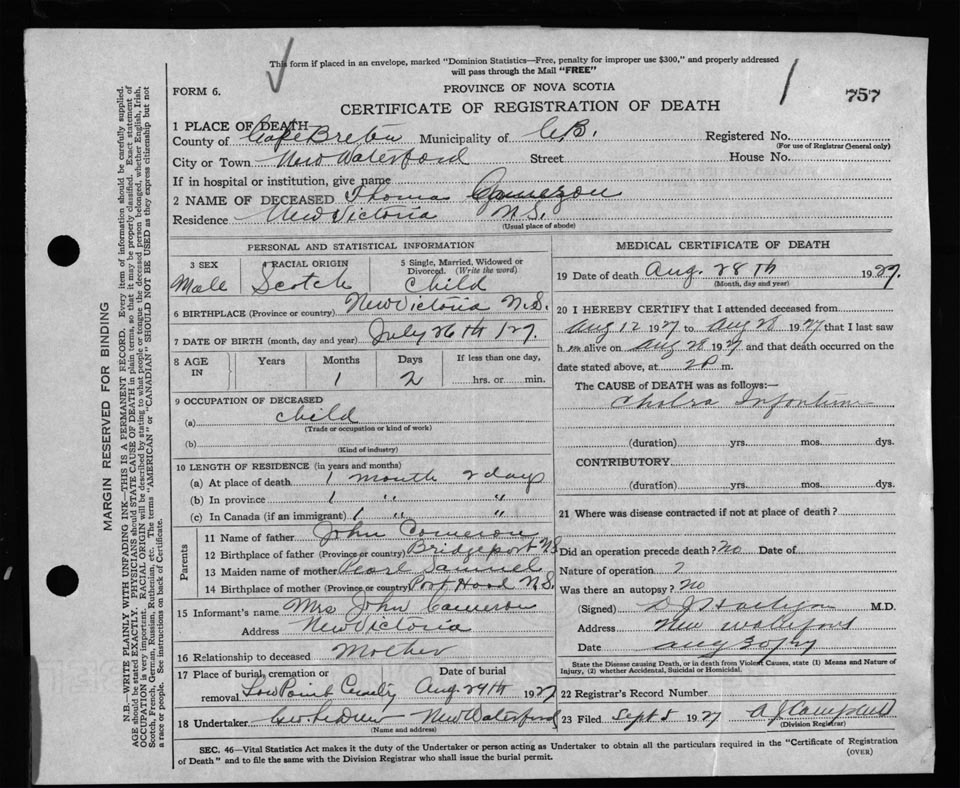 This form if placed in an envelope, marked "Dominion Statistics—Free, penalty for improper use $300," and properly addressed
will pass through the Mail "FREE"
FORM 6.
PROVINCE OF NOVA SCOTIA
757
CERTIFICATE OF REGISTRATION OF DEATH
1 PLACE OF DEATH
County of Cape Breton Municipality of C.B. Registered No.
(For use of Registrar General only)
City or Town New Waterford Street House No.
If in hospital or institution, give name
2 NAME OF DECEASED Thomas Cameron
Residence New Victoria N.S.
(Usual place of abode)
PERSONAL AND STATISTICAL INFORMATION
3 SEX 4 RACIAL ORIGIN 5 Single, Married, Widowed or
Divorced. (Write the word)
Male Scotch Child
6 BIRTHPLACE (Province or country) New Victoria N.S.
7 DATE OF BIRTH (month, day and year) July 26th 127.
8 AGE IN Years Months Days If less than one day,
1 2 hrs. or min.
9 OCCUPATION OF DECEASED
(a) Child
(Trade or occupation or kind of work)
(b)
(Kind of industry)
10 LENGTH OF RESIDENCE (in years and months)
(a) At place of death 1 month 2 days
(b) In province 1 " "
(c) In Canada (if an immigrant) 1 " "
Parents
11 Name of father John Cameron
12 Birthplace of father (Province or country) Bridgeport N.S.
13 Maiden name of mother Pearl Samuel
14 Birthplace of mother (Province or country) Port Hood N.S.
15 Informant's name Mrs John Cameron
Address New Victoria
16 Relationship to deceased Mother
17 Place of burial, cremation or Date of burial
removal Low Point Aug 29th 1927
18 Undertaker New Waterford
(Name and address)
MEDICAL CERTIFICATE OF DEATH
19 Date of death Aug. 28th 1927.
(Month, day and year)
20 I HEREBY CERTIFY that I attended deceased from
Aug 12 1927 to Aug 28 1927 that I last saw
h im alive on Aug 28 1927 and that death occurred on the
date stated above, at 2 P m.
The CAUSE of DEATH was as follows:—
Cholera Infantum
(duration) yrs. mos. dys.
CONTRIBUTORY
(duration) yrs. mos. dys.
21 Where was disease contracted if not at place of death?
Did an operation precede death? No Date of
Nature of operation ?
Was there an autopsy? No
(Signed) M.D.
Address New Waterford
Date Aug 30/27
State the Disease causing Death, or in death from Violent Causes, state (1) Means and Nature of
Injury, (2) whether Accidental, Suicidal or Homicidal.
22 Registrar's Record Number
23 Filed Sept 5 1927 A J Campbell
(Division Registrar)
SEC. 46—Vital Statistics Act makes it the duty of the Undertaker or person acting as Undertaker to obtain all the particulars required in the "Certificate of Registration
of Death" and to file the same with the Division Registrar who shall issue the burial permit. (OVER)
MARGIN RESERVED FOR BINDING
N.B.—WRITE PLAINLY WITH UNFADING INK—THIS IS A PERMANENT RECORD. Every item of information should be carefully supplied.
AGE should be stated EXACTLY. PHYSICIANS should STATE CAUSE OF DEATH in plain terms, so that it may be properly classified. Exact statement of
OCCUPATION is very important. RACIAL ORIGIN will be described by stating to what people or tongue the deceased person belonged, whether English, Irish,
Scotch, French, German, Russian, Ruthenian, etc. The terms "AMERICAN" or "CANADIAN" SHOULD NOT BE USED as they express citizenship but not
a race or people. See instructions on back of Certificate.